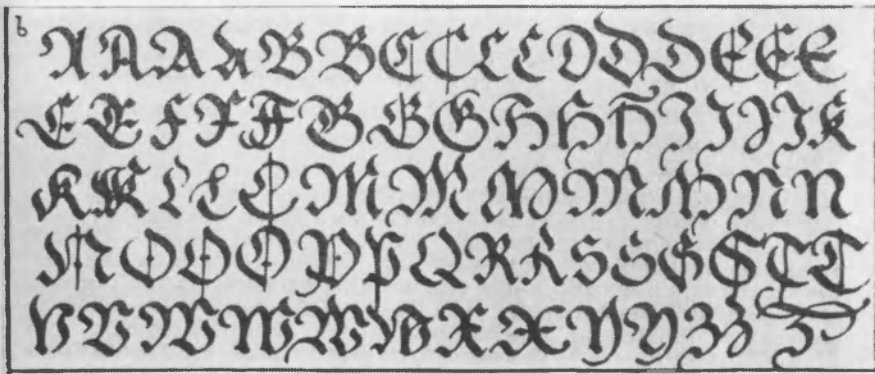 b
A A A A B B C C C C D D D E E E
E E F F F G G G H H H I I I I K
K K L L L M M M M M N N
N O O O P P Q R R S S S S T T
V V W W W W X X Y Y Z Z Z